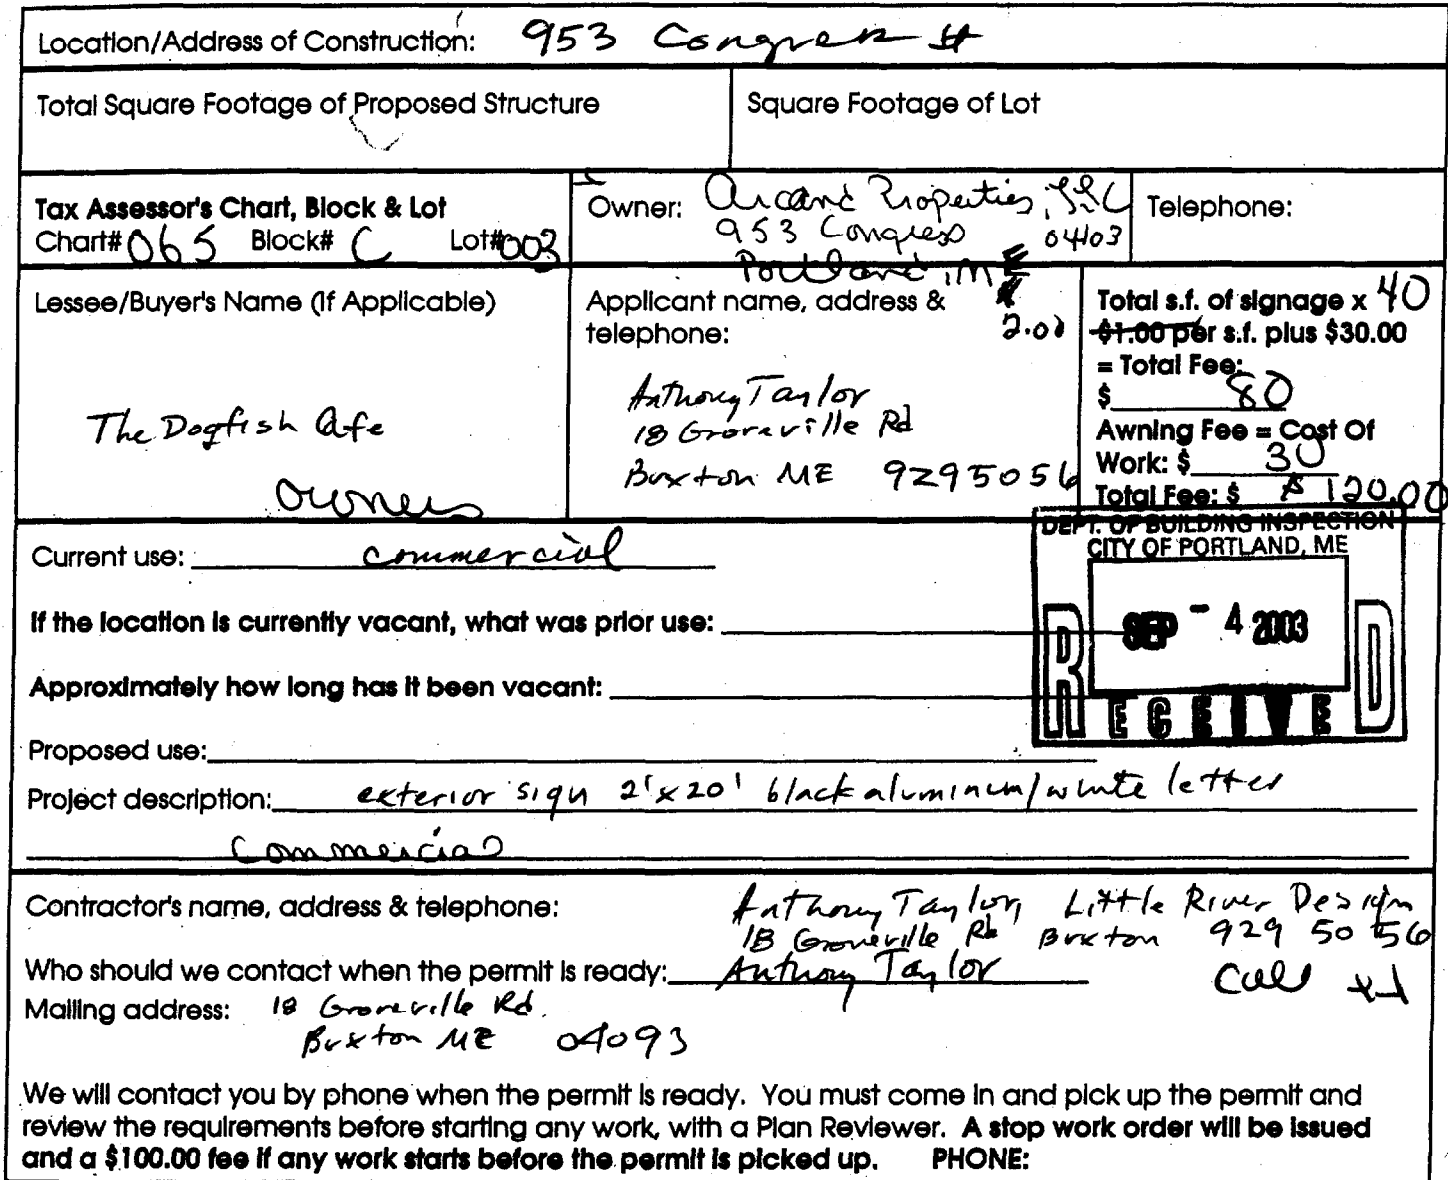 Location/Address of Construction: 953 Congress St
Total Square Footage of Proposed Structure
Square Footage of Lot
Tax Assessor's Chart, Block & Lot
Chart# 065 Block# C Lot# 003
Owner: Arcand Properties, LLC
953 Congress 04103
Portland, ME
Telephone:
Lessee/Buyer's Name (If Applicable)
The Dogfish Cafe
owners
Applicant name, address &
telephone:
Anthony Taylor
18 Groveville Rd
Buxton ME 9295056
Total s.f. of signage x 40
2.00
$1.00 per s.f. plus $30.00
= Total Fee:
$ 80
Awning Fee = Cost Of
Work: $ 30
Total Fee: $ $120.00
DEPT. OF BUILDING INSPECTION
CITY OF PORTLAND, ME
SEP - 4 2003
RECEIVED
Current use: commercial
If the location is currently vacant, what was prior use:
Approximately how long has it been vacant:
Proposed use:
Project description: exterior sign 2'x20' black aluminum/white letter
Commercial
Contractor's name, address & telephone: Anthony Taylor, Little River Design
18 Groveville Rd Buxton 929 50 56
Who should we contact when the permit is ready: Anthony Taylor
Call
Mailing address: 18 Groveville Rd.
Buxton ME 04093
We will contact you by phone when the permit is ready. You must come in and pick up the permit and
review the requirements before starting any work, with a Plan Reviewer. A stop work order will be issued
and a $100.00 fee if any work starts before the permit is picked up. PHONE: